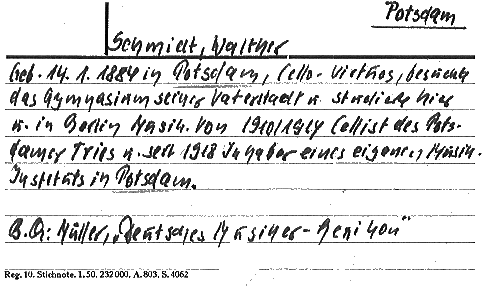 Potsdam
Schmidt, Walther
Geb. 14. 1. 1884 in Potsdam, Cello-Virtuos, besuchte
das Gymnasium seiner Vaterstadt u. studierte hier
u. in Berlin Musik. Von 1910/1914 Cellist des Pots-
damer Trios u. seit 1918 Inhaber eines eigenen Musik-
Instituts in Potsdam.
B.Q: Müller, „Deutsches Musiker-Lexikon"
Reg. 10. Stichnote. 1.50. 232000. A. 803. S. 4062